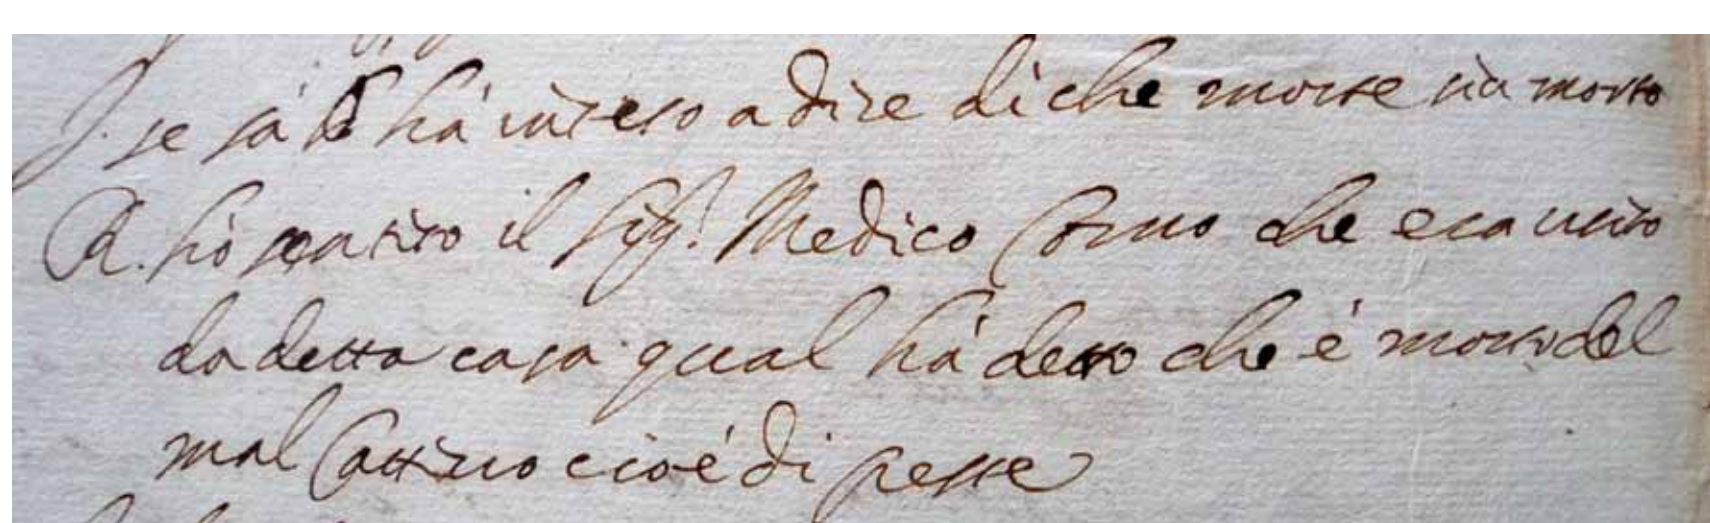 J. se sà ò hà inteso a dire di che morte sia morto
R. hò sentito il Sig.r Medico Corno che era vicino
da detta casa qual hà detto che é morto del
mal Cattivo cioé di peste